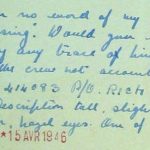 no word of my
sing. Would you
y any trace of him
the crew not account
414093 P/O. RICH
escription tall, slight
r, hazel eyes. One of
*15 AVR 1946